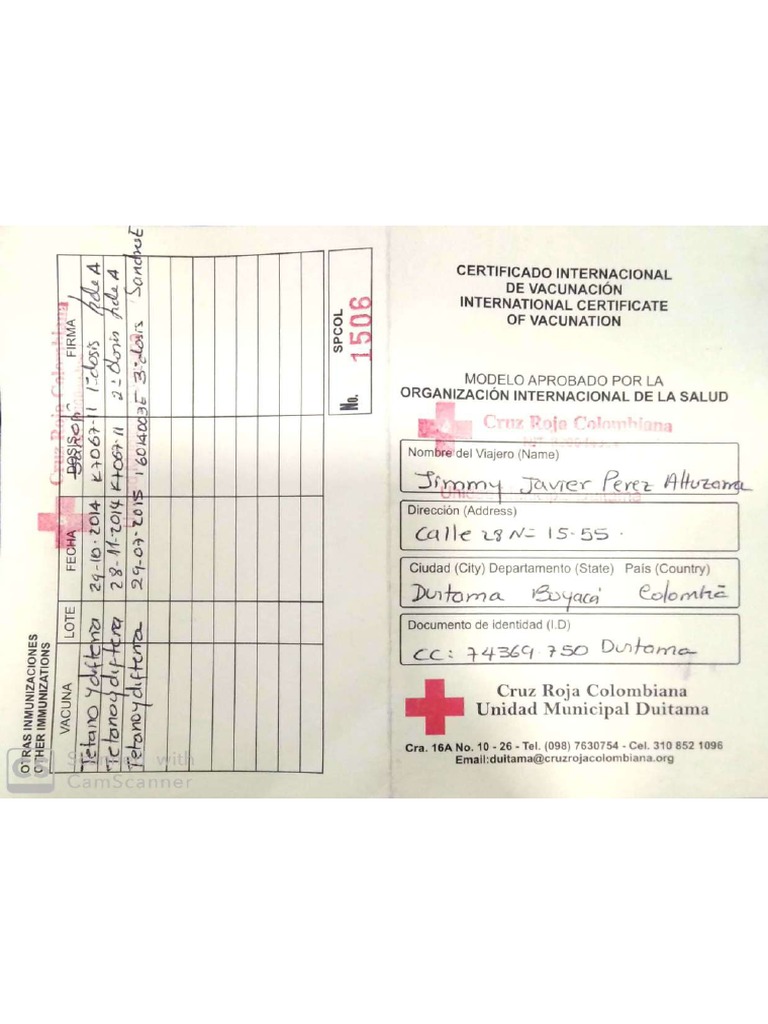 OTRAS INMUNIZACIONES
OTHER IMMUNIZATIONS
VACUNA LOTE FECHA DOSIS FIRMA
Tetano y difteria 29-10-2014 K7067-11 1ª dosis
Tetano y difteria 28-11-2014 K7067-11 2ª dosis
Tetano y difteria 29-07-2015 160140036 3ª dosis
Cruz Roja Colombiana
SPCOL
No. 1506
CERTIFICADO INTERNACIONAL
DE VACUNACIÓN
INTERNATIONAL CERTIFICATE
OF VACUNATION
MODELO APROBADO POR LA
ORGANIZACIÓN INTERNACIONAL DE LA SALUD
Cruz Roja Colombiana
Nombre del Viajero (Name)
Jimmy Javier Perez Altuzarra
Dirección (Address)
Calle 28 N= 15-55.
Ciudad (City) Departamento (State) País (Country)
Duitama Boyacá Colombia
Documento de identidad (I.D)
CC: 74369.750 Duitama
Cruz Roja Colombiana
Unidad Municipal Duitama
Cra. 16A No. 10 - 26 - Tel. (098) 7630754 - Cel. 310 852 1096
Email:duitama@cruzrojacolombiana.org
CS Scanned with
CamScanner